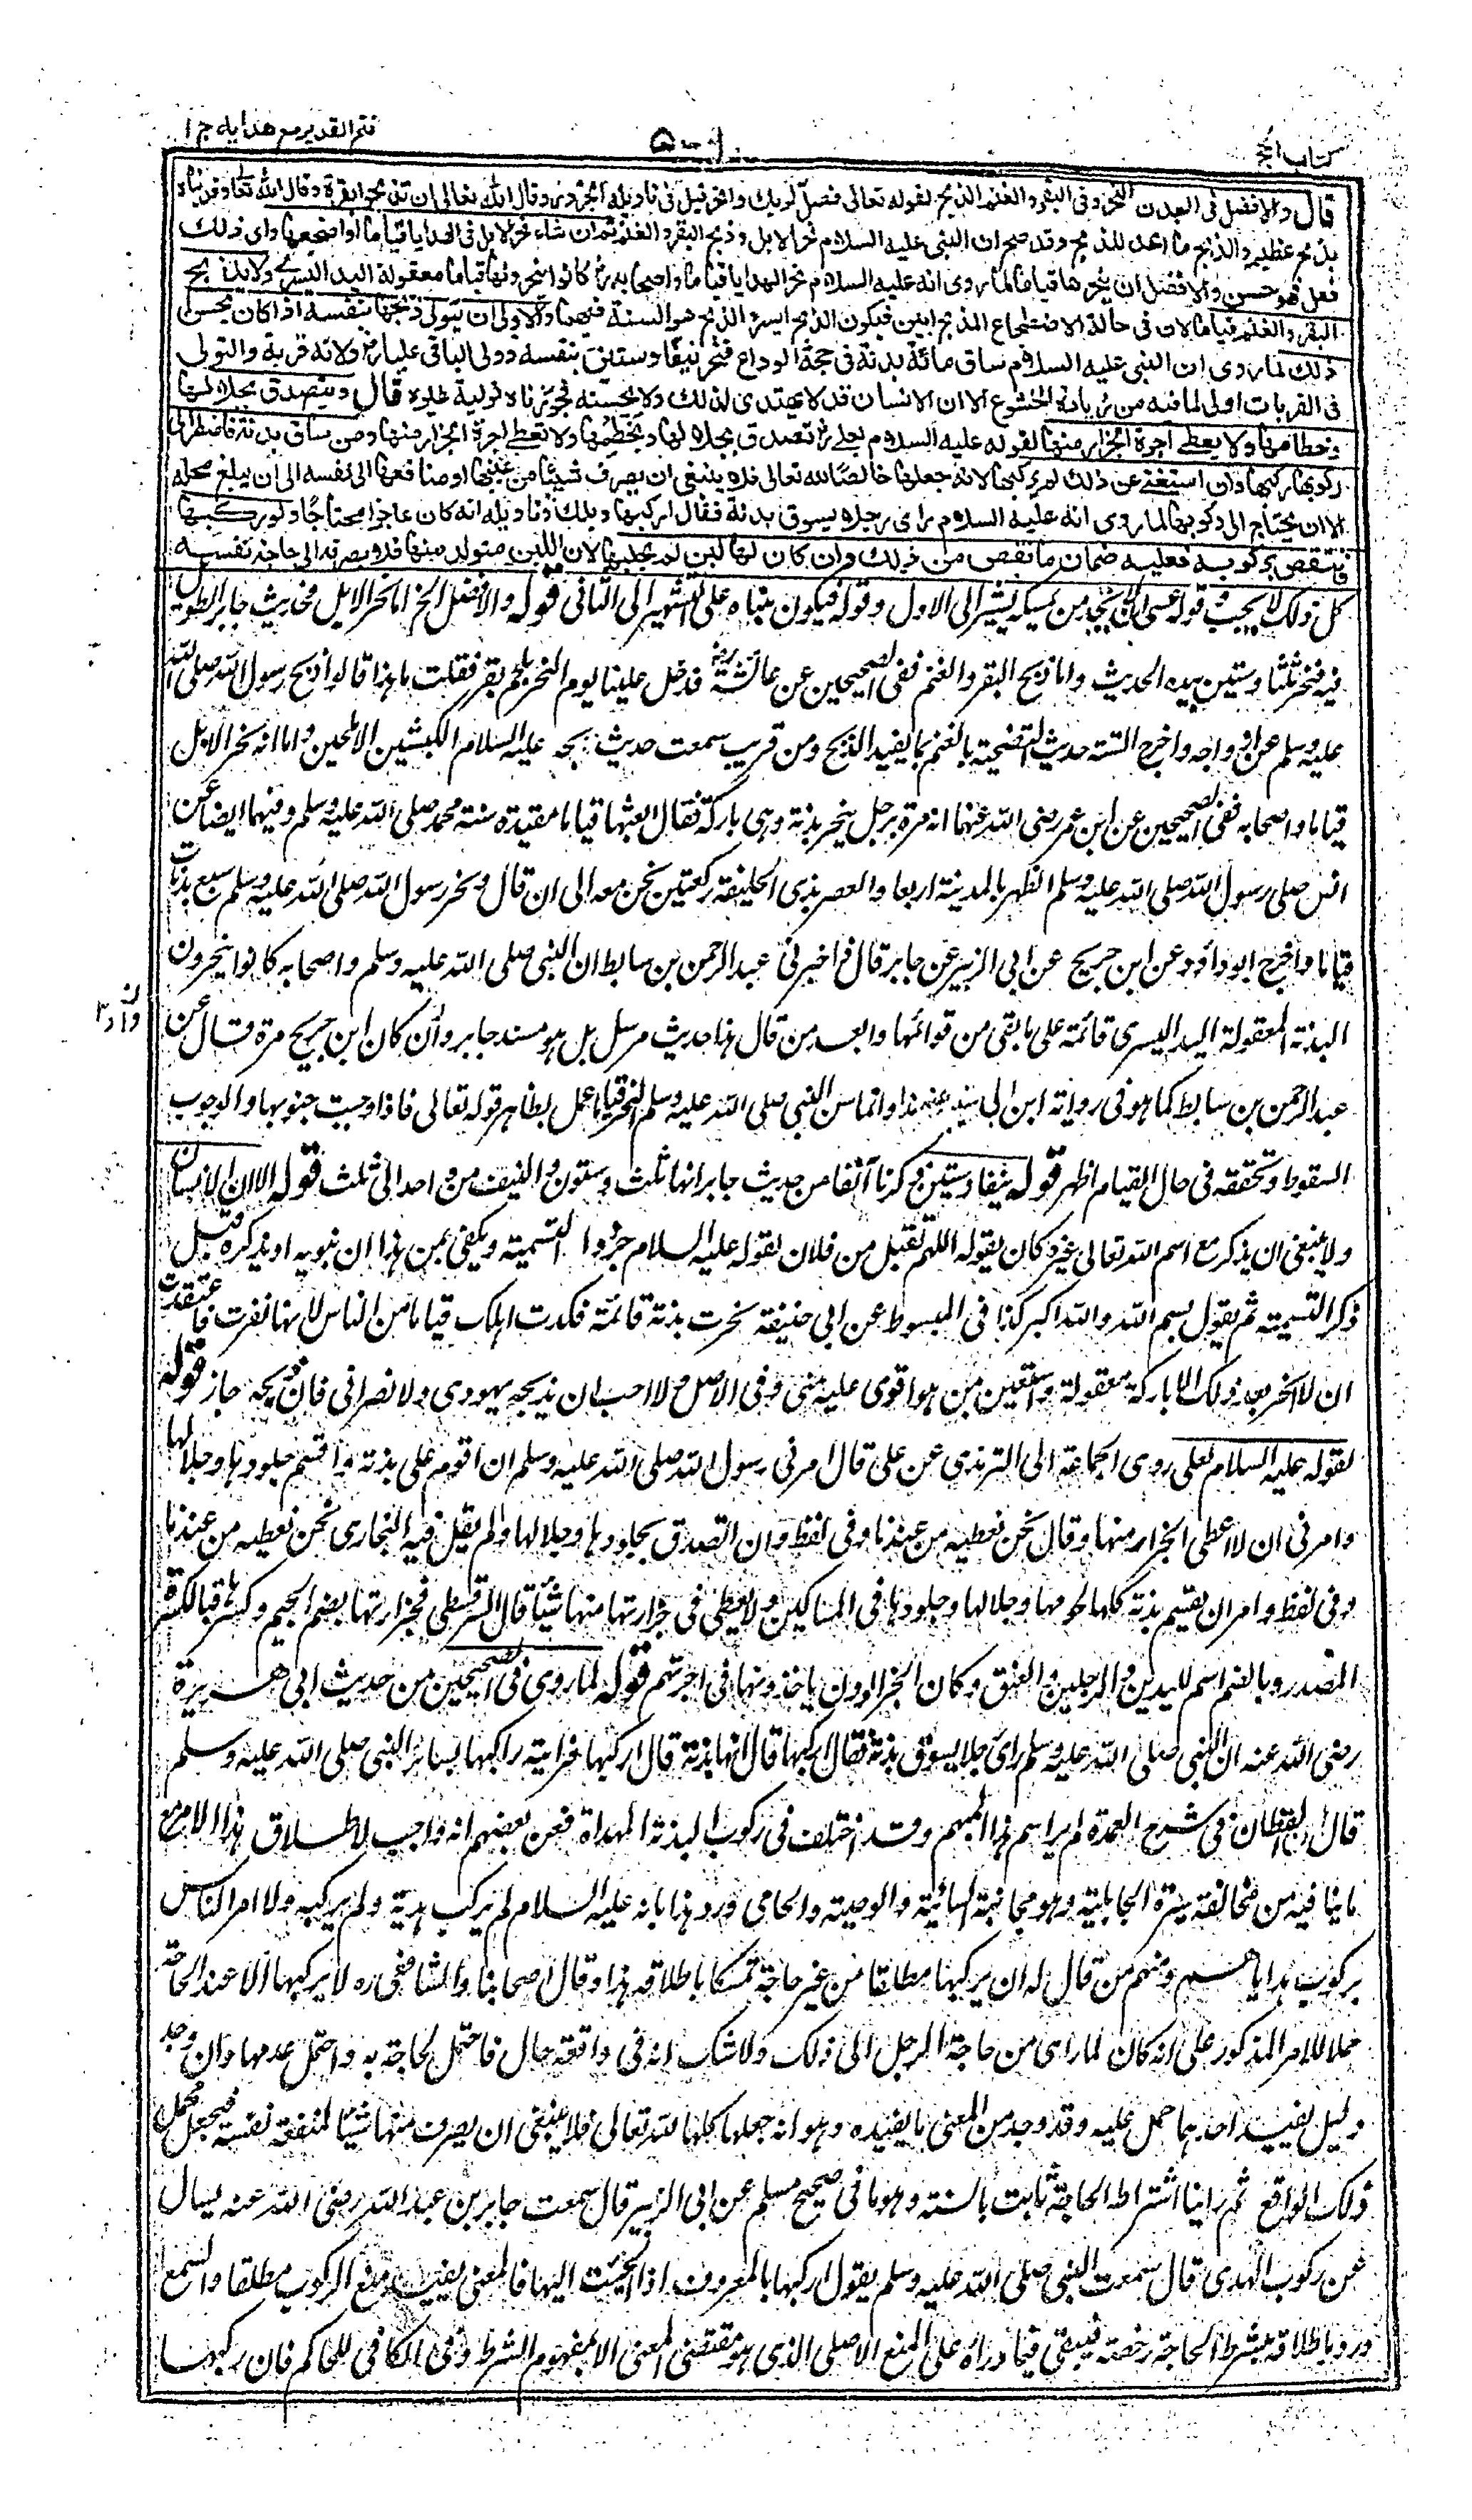 كتاب الحج
٥٠١
فتح القدير مع هدايه ج ١
قال والافضل فى البدن النحر وفى البقر والغنم الذبح لقوله تعالى فصل لربك وانحر قيل فى تاويله الجزور وقال الله تعالى ان تذبحوا بقرة وقال الله تعالى وفديناه
بذبح عظيم والذبح ما اعد للذبح وقد صح ان النبى عليه السلام نحر الابل وذبح البقر والغنم ثم ان شاء نحر الابل فى الهدايا قياما او اضجعها واى ذلك
فعل فهو حسن والافضل ان ينحرها قياما لما روى انه عليه السلام نحر الهدايا قياما واصحابه رض كانوا ينحرونها قياما معقولة اليد اليسرى ولا يذبح
البقر والغنم قياما لان فى حالة الاضطجاع المذبح ابين فيكون الذبح ايسر والذبح هو السنة فيهما والاولى ان يتولى ذبحها بنفسه اذا كان يحسن
ذلك لما روى ان النبى عليه السلام ساق مائة بدنة فى حجة الوداع فنحر نيفا وستين بنفسه وولى الباقى عليا رض ولانه قربة والتولى
فى القربات اولى لما فيه من زيادة الخشوع الا ان الانسان قد لا يهتدى لذلك ولا يحسنه فجوزناه تولية غيره قال ويتصدق بجلالها
وخطامها ولا يعطى اجرة الجزار منها لقوله عليه السلام لعلى رض تصدق بجلالها وبخطمها ولا تعط اجرة الجزار منها ومن ساق بدنة فاضطر الى
ركوبها ركبها وان استغنى عن ذلك لم يركبها لانه جعلها خالصا لله تعالى فلا ينبغى ان يصرف شيئا من عينها او منافعها الى نفسه الى ان يبلغ محله
الا ان يحتاج الى ركوبها لما روى انه عليه السلام راى رجلا يسوق بدنة فقال اركبها ويلك وتاويله انه كان عاجزا محتاجا ولو ركبها
فانتقص بركوبه فعليه ضمان ما نقص من ذلك وان كان لها لبن لم يحلبها لان اللبن متولد منها فلا يصرفه الى حاجة نفسه
كل ذلك لا يجب وقوله عسى ان لا يجد من يمسكه يشير الى الاول وقوله فيكون مبناه على التشهير الى الثانى قوله والافضل الخ اما نحر الابل فحديث جابر الطويل
فيه فنحر ثلثا وستين بيده الحديث واما ذبح البقر والغنم ففى الصحيحين عن عائشة رض فدخل علينا يوم النحر بلحم بقر فقلت ما هذا قالوا ذبح رسول الله صلى الله
عليه وسلم عن ازواجه واخرج الستة حديث التضحية بالغنم بما يفيد الذبح ومن قريب سمعت حديث ذبحه عليه السلام الكبشين الاملحين واما انه نحر الابل
قياما واصحابه ففى الصحيحين عن ابن عمر رضى الله عنهما انه مر برجل ينحر بدنة وهى باركة فقال ابعثها قياما مقيدة سنة محمد صلى الله عليه وسلم وفيهما ايضا عن
انس صلى رسول الله صلى الله عليه وسلم الظهر بالمدينة اربعا والعصر بذى الحليفة ركعتين نحن معه الى ان قال ونحر رسول الله صلى الله عليه وسلم سبع بدنات
قياما واخرج ابو داؤد عن ابن جريج عن ابى الزبير عن جابر قال واخبرنى عبد الرحمن بن سابط ان النبى صلى الله عليه وسلم واصحابه كانوا ينحرون
البدنة المعقولة اليد اليسرى قائمة على ما بقى من قوائمها وابعد من قال هذا حديث مرسل بل هو مسند جابر وان كان ابن جريج مرة قال عن
عبد الرحمن بن سابط كما هو فى رواية ابن ابى شيبة عنه هذا وانما سن النبى صلى الله عليه وسلم النحر قياما عمل بظاهر قوله تعالى فاذا وجبت جنوبها والوجوب
السقوط وتحققه فى حال القيام اظهر قوله نيفا وستين ذكرنا آنفا من حديث جابر انها ثلث وستون والنيف من واحد الى ثلث قوله الا ان الانسان
ولا ينبغى ان يذكر مع اسم الله تعالى غيره كان يقول اللهم تقبل من فلان لقوله عليه السلام جردوا التسمية ويكفى عن هذا ان ينويه او يذكره قبل
ذكر التسمية ثم يقول بسم الله والله اكبر كذا فى المبسوط عن ابى حنيفة نحرت بدنة قائمة فكدت اهلك قياما من الناس لانها نفرت فاعتقدت
ان لا انحر بعد ذلك الا باركة معقولة واستعين بمن هو اقوى عليه منى وفى الاصل ولا احب ان يذبحه يهودى ولا نصرانى فان ذبحه جاز قوله
لقوله عليه السلام لعلى روى الجماعة الا الترمذى عن على قال امرنى رسول الله صلى الله عليه وسلم ان اقوم على بدنة واقسم جلودها وجلالها
وامرنى ان لا اعطى الجزار منها وقال نحن نعطيه من عندنا وفى لفظ وان اتصدق بجلودها وجلالها ولم يقل فيه البخارى نحن نعطيه من عندنا
وفى لفظ وامره ان يقسم بدنة كلها لحومها وجلالها وجلودها فى المساكين ولا يعطى فى جزارتها منها شيئا قال السرقسطى جزارتها بضم الجيم وكسرها فبالكسر
المصدر وبالضم اسم لليدين والرجلين والعنق وكان الجزارون ياخذونها فى اجرتهم قوله لما روى فى الصحيحين من حديث ابى هريرة
رضى الله عنه ان النبى صلى الله عليه وسلم راى رجلا يسوق بدنة فقال اركبها قال انها بدنة قال اركبها فرايته راكبها يساير النبى صلى الله عليه وسلم
قال ابن القطان فى شرح العمدة لم ير اسم هذا المبهم وقد اختلف فى ركوب البدنة المهداة فعن بعضهم انه واجب لاطلاق هذا الامر مع
ما فيه من مخالفة سيرة الجاهلية وهو مجانبة السائبة والوصيلة والحامى ورد هذا بانه عليه السلام لم يركب هديه ولم يركبه ولا امر الناس
بركوب هداياهم ومنهم من قال له ان يركبها مطلقا من غير حاجة تمسكا باطلاقه هذا وقال اصحابنا والشافعى ره لا يركبها الا عند الحاجة
حملا للامر المذكور على انه كان لما راى من حاجة الرجل الى ذلك ولا شك انه فى واقعة حال فاحتمل لحاجة به واحتمل عدمها وان وجد
دليل يفيد احدهما حمل عليه وقد وجد من المعنى ما يفيده وهو انه جعلها كلها لله تعالى فلا ينبغى ان يصرف منها شيئا لمنفعة نفسه فيجعل محمل
ذلك الواقع ثم راينا اشتراط الحاجة ثابت بالسنة وهو ما فى صحيح مسلم عن ابى الزبير قال سمعت جابر بن عبد الله رضى الله عنه يسال
عن ركوب الهدى قال سمعت النبى صلى الله عليه وسلم يقول اركبها بالمعروف اذا الجئت اليها فالمعنى يفيد منع الركوب مطلقا والسمع
ورد باطلاقه بشرط الحاجة رخصة فيبقى فيما وراءه على المنع الاصلى الذى هو مقتضى المعنى لا بمفهوم الشرط وفى الكافى للحاكم فان ركبها